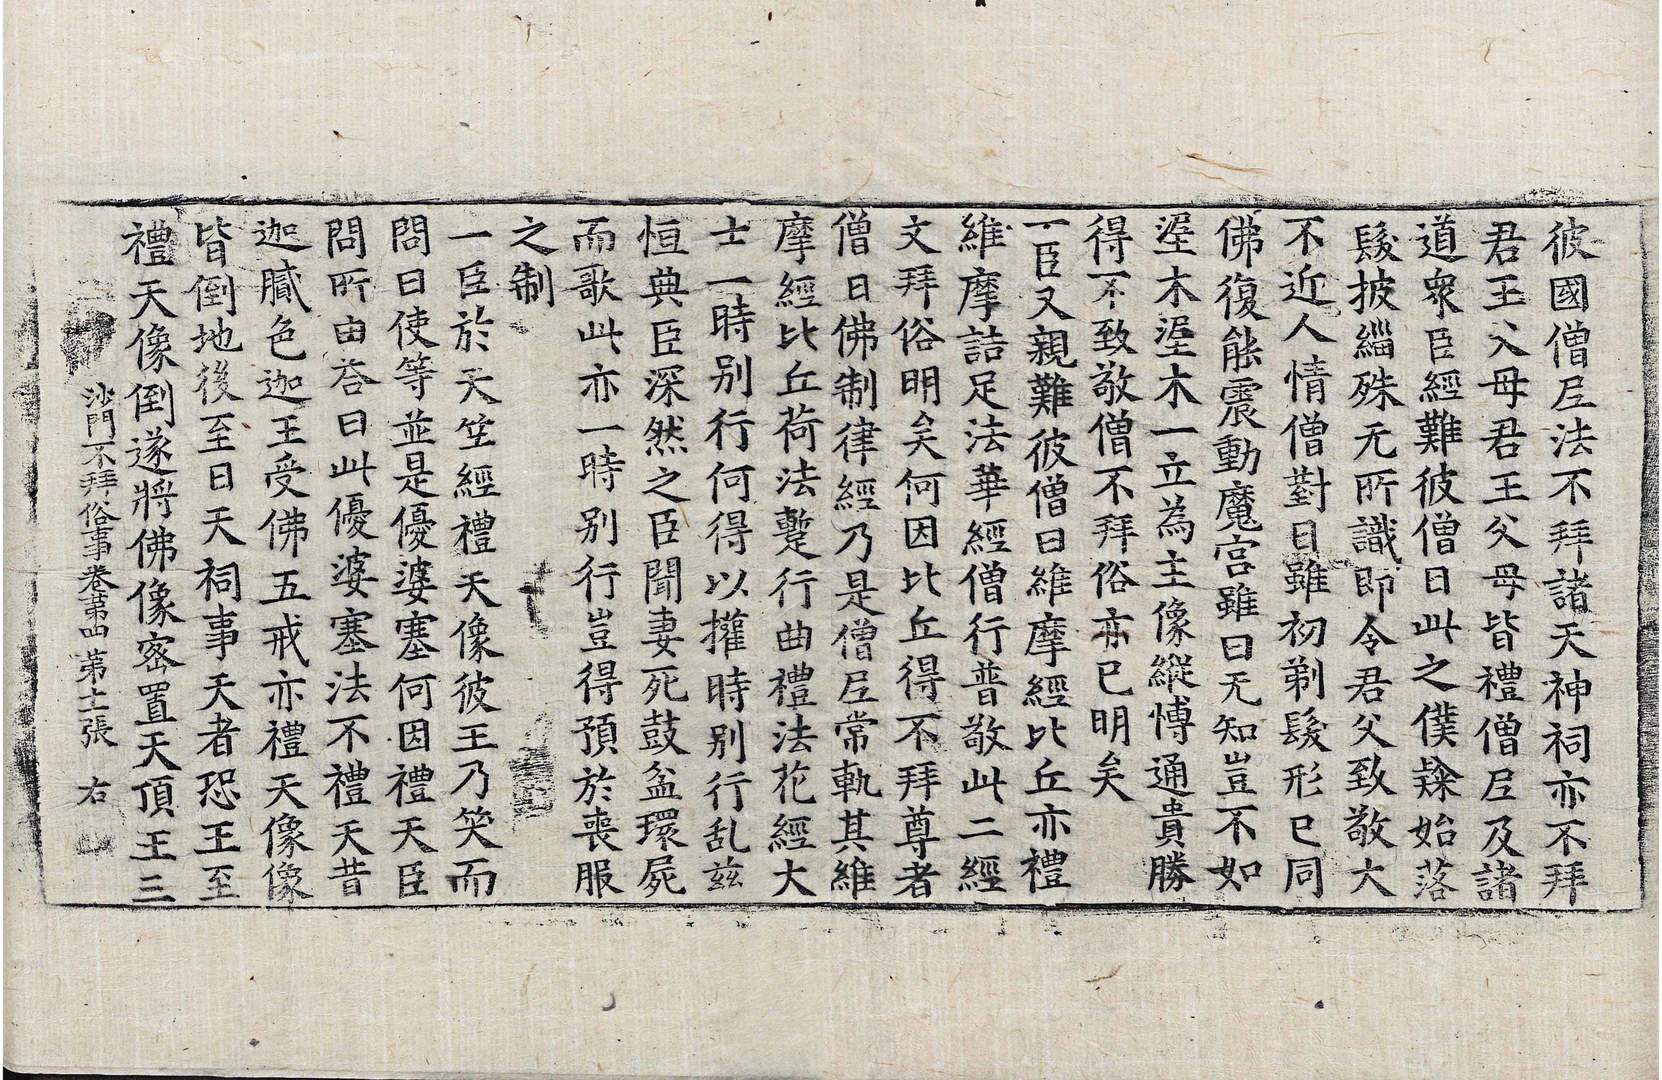 彼國僧尼法不拜諸天神祠亦不拜
君王父母君王父母皆禮僧尼及諸
道衆臣經難彼僧曰此之僕𨽻始落
髮披緇殊无所識即令君父致敬大
不近人情僧對曰雖初剃髮形已同
佛復能震動魔宫雖曰无知豈不如
埿木埿木一立為主像縱博通貴勝
得不致敬僧不拜俗亦已明矣
一臣又親難彼僧曰維摩經比丘亦禮
維摩詰足法華經僧行普敬此二經
文拜俗明矣何因比丘得不拜尊者
僧曰佛制律經乃是僧尼常軌其維
摩經比丘荷法蹔行曲禮法花經大
士一時别行何得以攉時别行乱兹
恒典臣深然之臣聞妻死鼓盆環屍
而歌此亦一時别行豈得預於喪服
之制
一臣於天竺經禮天像彼王乃笑而
問曰使等並是優婆塞何因禮天臣
問所由荅曰此優婆塞法不禮天昔
迦膩色迦王受佛五戒亦禮天像像
皆倒地後至日天祠事天者恐王至
禮天像倒遂將佛像密置天頂王三
沙門不拜俗事卷第四 第十二張 右